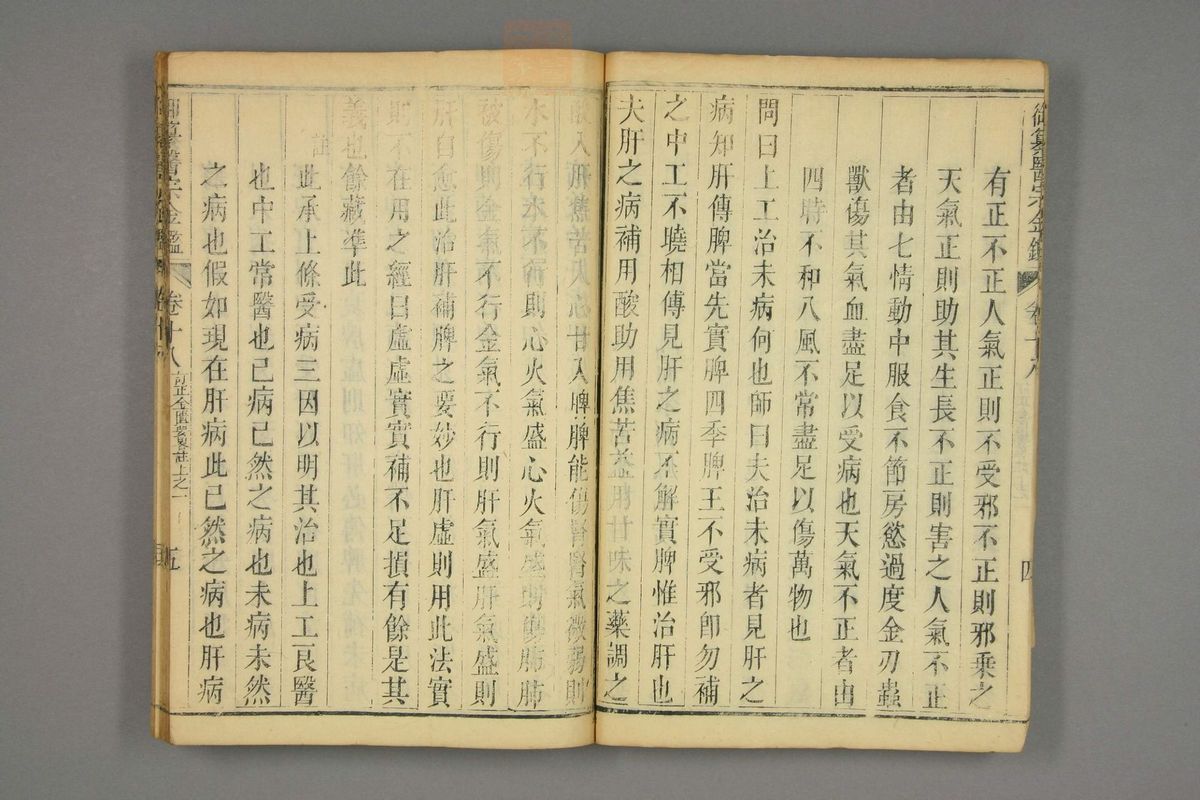 御纂醫宗金鑑 卷十八 四
有正不正人氣正則不受邪不正則邪乘之
天氣正則助其生長不正則害之人氣不正
者由七情動中服食不節房慾過度金刃蟲
獸傷其氣血盡足以受病也天氣不正者由
四時不和八風不常盡足以傷萬物也
問曰上工治未病何也師曰夫治未病者見肝之
病知肝傳脾當先實脾四季脾王不受邪即勿補
之中工不曉相傳見肝之病不解實脾惟治肝也
夫肝之病補用酸助用焦苦益用甘味之藥調之
酸入肝焦苦入心甘入脾脾能傷腎腎氣微弱則
水不行水不行則心火氣盛心火氣盛則傷肺肺
被傷則金氣不行金氣不行則肝氣盛肝氣盛則
肝自愈此治肝補脾之要妙也肝虛則用此法實
則不在用之經曰虛虛實實補不足損有餘是其
義也餘藏準此
註
此承上條受病三因以明其治也上工良醫
也中工常醫也已病已然之病也未病未然
之病也假如現在肝病此已然之病也肝病
御纂醫宗金鑑 卷十八 訂正金匱要畧註上之一 五